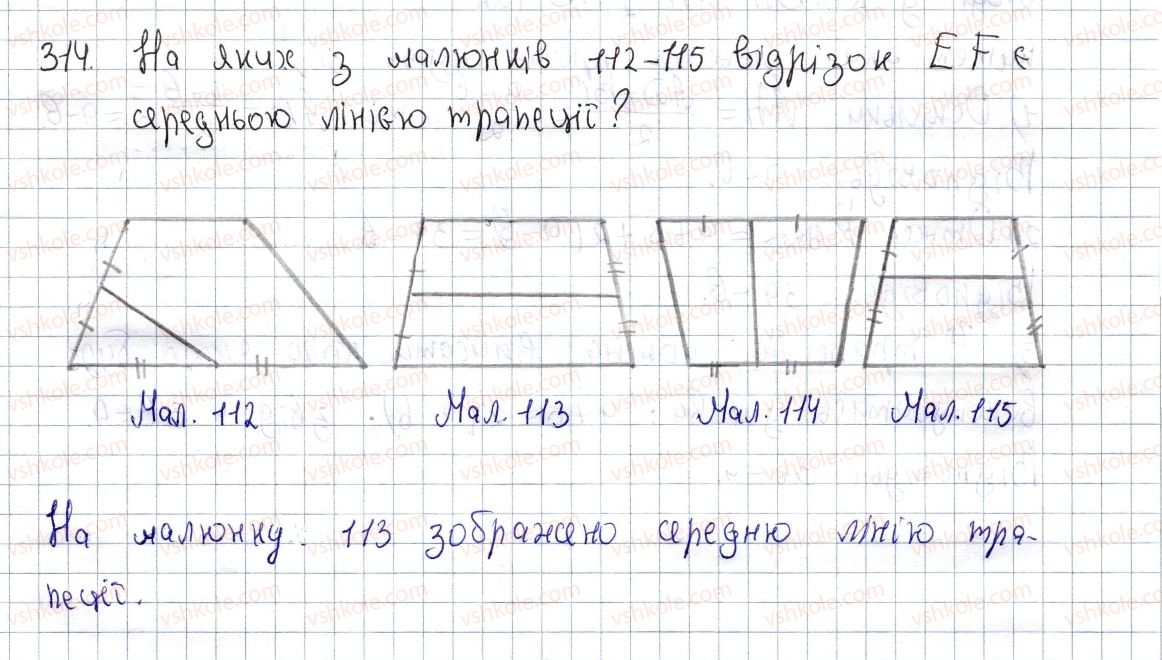 314. На яких з малюнків 112-115 відрізок EF є
середньою лінією трапеції?
Мал. 112 Мал. 113 Мал. 114 Мал. 115
На малюнку 113 зображено середню лінію тра-
пеції.